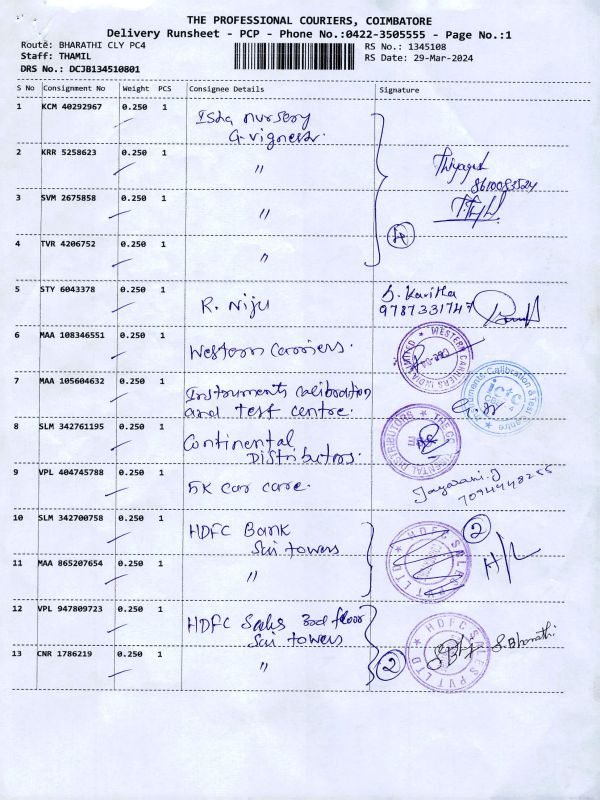 THE PROFESSIONAL COURIERS, COIMBATORE
Delivery Runsheet - PCP - Phone No.:0422-3505555 - Page No.:1
Route: BHARATHI CLY PC4
Staff: THAMIL
DRS No.: DCJB134510801
RS No.: 1345108
RS Date: 29-Mar-2024
S No Consignment No Weight PCS Consignee Details Signature
1 KCM 40292967 0.250 1 Isha nursery
G. vignesh.
2 KRR 5258623 0.250 1 "
Thiyagesh
8610083524
3 SVM 2675858 0.250 1 "
4
4 TVR 4206752 0.250 1 "
5 STY 6043378 0.250 1 R. Niju
S. Kavitha
9787331747
6 MAA 108346551 0.250 1 Western Carriers.
WESTERN CARRIERS INDIA LIMITED
7 MAA 105604632 0.250 1 Instruments calibration
and test centre.
Instruments Calibration & Test Centre
ictc
8 SLM 342761195 0.250 1 Continental
Distributors.
9 VPL 404745788 0.250 1 5K car care.
Jayarani. J
7094448255
10 SLM 342700758 0.250 1 HDFC Bank
Sai towers
2
HDFC SALES PVT LTD
11 MAA 865207654 0.250 1 "
12 VPL 947809723 0.250 1 HDFC Sales 3rd floor
Sai towers
HDFC SALES PVT LTD
S. Bharathi
13 CNR 1786219 0.250 1 "
2